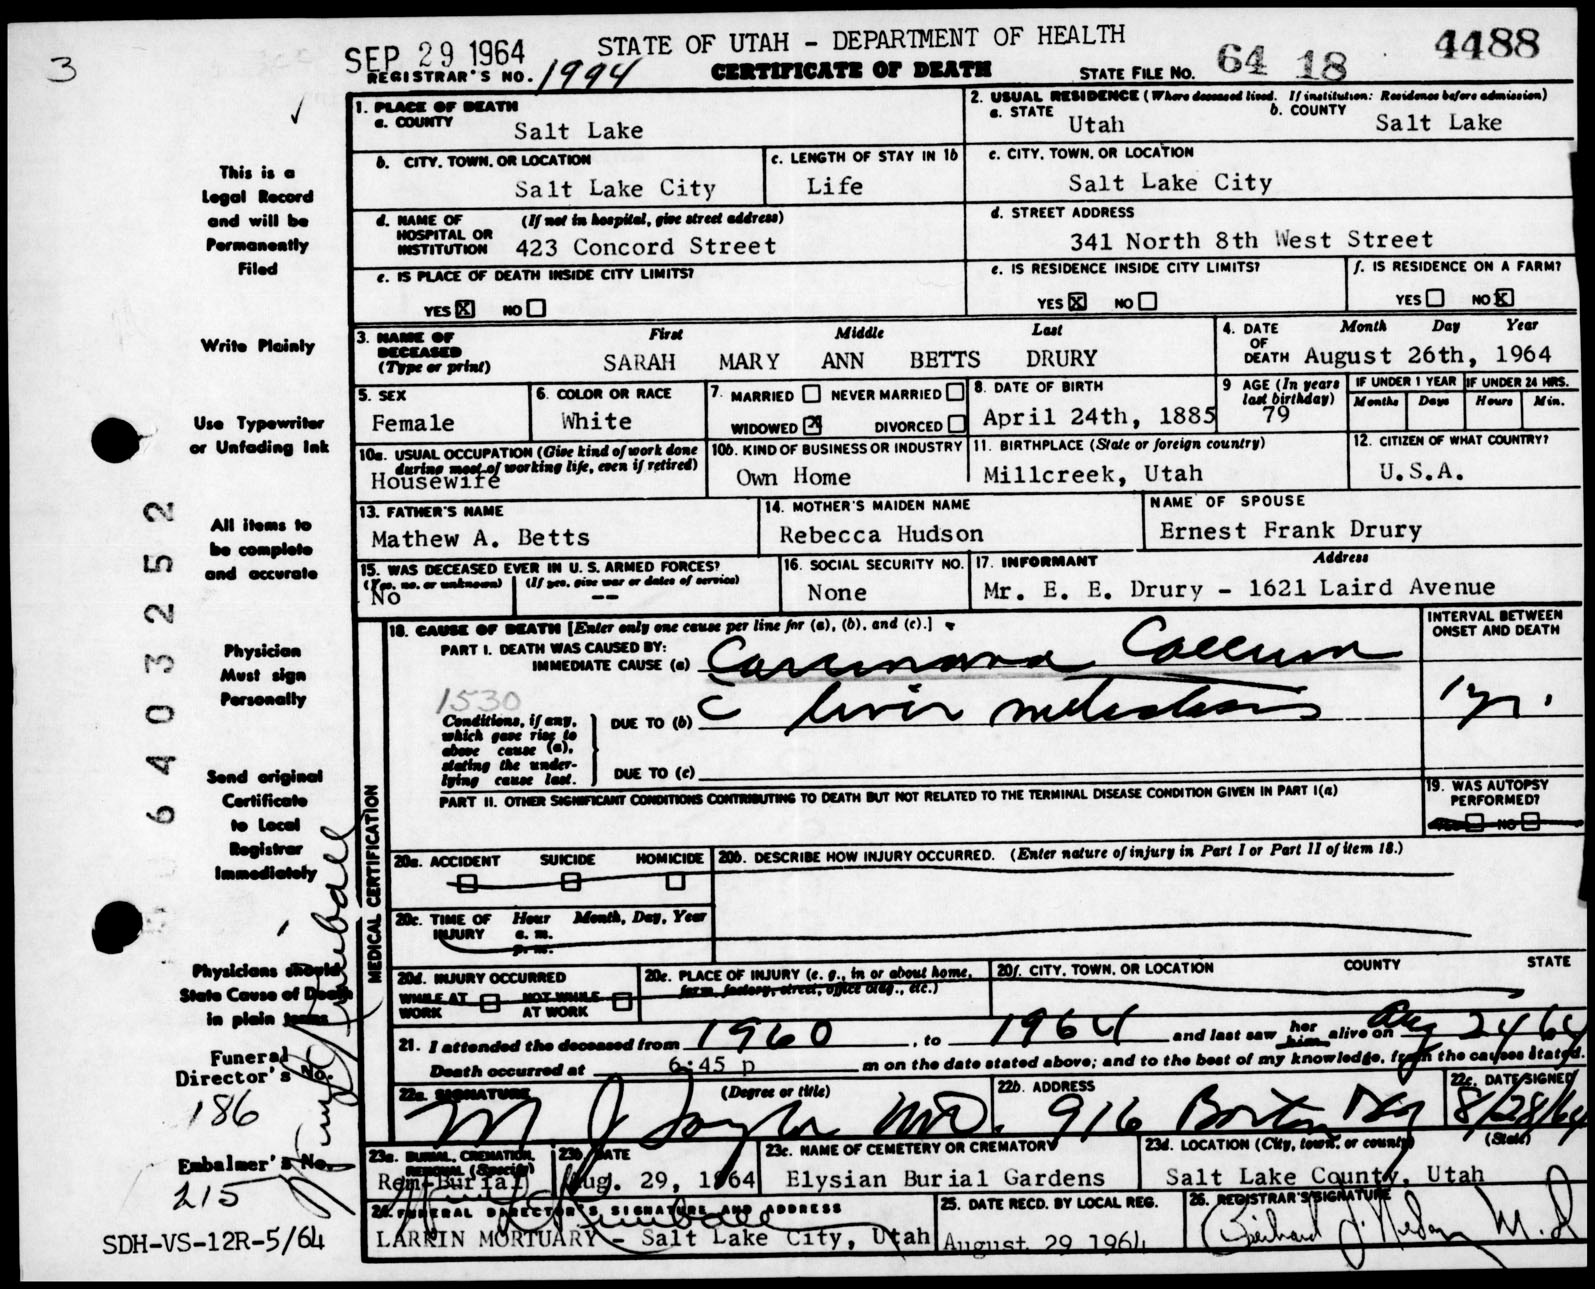 3
SEP 29 1964
STATE OF UTAH - DEPARTMENT OF HEALTH
4488
REGISTRAR'S NO. 1994
CERTIFICATE OF DEATH
STATE FILE NO. 64 18
1. PLACE OF DEATH
a. COUNTY
Salt Lake
2. USUAL RESIDENCE (Where deceased lived. If institution: Residence before admission)
a. STATE
Utah
b. COUNTY
Salt Lake
b. CITY, TOWN, OR LOCATION
Salt Lake City
c. LENGTH OF STAY IN 1b
Life
c. CITY, TOWN, OR LOCATION
Salt Lake City
d. NAME OF HOSPITAL OR INSTITUTION
(If not in hospital, give street address)
423 Concord Street
d. STREET ADDRESS
341 North 8th West Street
e. IS PLACE OF DEATH INSIDE CITY LIMITS?
YES X NO
e. IS RESIDENCE INSIDE CITY LIMITS?
YES X NO
f. IS RESIDENCE ON A FARM?
YES NO X
3. NAME OF DECEASED (Type or print)
First Middle Last
SARAH MARY ANN BETTS DRURY
4. DATE OF DEATH
Month Day Year
August 26th, 1964
5. SEX
Female
6. COLOR OR RACE
White
7. MARRIED NEVER MARRIED
WIDOWED X DIVORCED
8. DATE OF BIRTH
April 24th, 1885
9 AGE (In years last birthday)
79
IF UNDER 1 YEAR
Months Days
IF UNDER 24 HRS.
Hours Min.
10a. USUAL OCCUPATION (Give kind of work done during most of working life, even if retired)
Housewife
10b. KIND OF BUSINESS OR INDUSTRY
Own Home
11. BIRTHPLACE (State or foreign country)
Millcreek, Utah
12. CITIZEN OF WHAT COUNTRY?
U.S.A.
13. FATHER'S NAME
Mathew A. Betts
14. MOTHER'S MAIDEN NAME
Rebecca Hudson
NAME OF SPOUSE
Ernest Frank Drury
15. WAS DECEASED EVER IN U. S. ARMED FORCES?
(Yes, no, or unknown) (If yes, give war or dates of service)
No --
16. SOCIAL SECURITY NO.
None
17. INFORMANT Address
Mr. E. E. Drury - 1621 Laird Avenue
MEDICAL CERTIFICATION
18. CAUSE OF DEATH [Enter only one cause per line for (a), (b), and (c).]
PART I. DEATH WAS CAUSED BY:
IMMEDIATE CAUSE (a) Carcinoma Caecum
1530
Conditions, if any, which gave rise to above cause (a), stating the underlying cause last.
DUE TO (b) c liver metastasis
DUE TO (c)
INTERVAL BETWEEN ONSET AND DEATH
1 yr.
PART II. OTHER SIGNIFICANT CONDITIONS CONTRIBUTING TO DEATH BUT NOT RELATED TO THE TERMINAL DISEASE CONDITION GIVEN IN PART I(a)
19. WAS AUTOPSY PERFORMED?
YES NO
20a. ACCIDENT SUICIDE HOMICIDE
20b. DESCRIBE HOW INJURY OCCURRED. (Enter nature of injury in Part I or Part II of item 18.)
20c. TIME OF INJURY
Hour Month, Day, Year
a. m.
p. m.
20d. INJURY OCCURRED
WHILE AT WORK NOT WHILE AT WORK
20e. PLACE OF INJURY (e. g., in or about home, farm, factory, street, office bldg., etc.)
20f. CITY, TOWN, OR LOCATION COUNTY STATE
21. I attended the deceased from 1960, to 1964 and last saw her him alive on Aug 24 64
Death occurred at 6:45 p m on the date stated above; and to the best of my knowledge, from the causes stated.
22a. SIGNATURE (Degree or title)
M J Taylor MD.
22b. ADDRESS
916 Boston Bldg
22c. DATE SIGNED
8/28/64
23a. BURIAL, CREMATION, REMOVAL (Specify)
Rem-Burial
23b. DATE
Aug. 29, 1964
23c. NAME OF CEMETERY OR CREMATORY
Elysian Burial Gardens
23d. LOCATION (City, town, or county) (State)
Salt Lake County, Utah
24. FUNERAL DIRECTOR'S SIGNATURE AND ADDRESS
LARKIN MORTUARY - Salt Lake City, Utah
25. DATE RECD. BY LOCAL REG.
August 29 1964
26. REGISTRAR'S SIGNATURE
M.D
This is a
Legal Record
and will be
Permanently
Filed
Write Plainly
Use Typewriter
or Unfading Ink
All items to
be complete
and accurate
Physician
Must sign
Personally
Send original
Certificate
to Local
Registrar
Immediately
Physicians should
State Cause of Death
in plain terms
Funeral
Director's No.
186
Embalmer's No.
215
SDH-VS-12R-5/64
6403252
Kimball